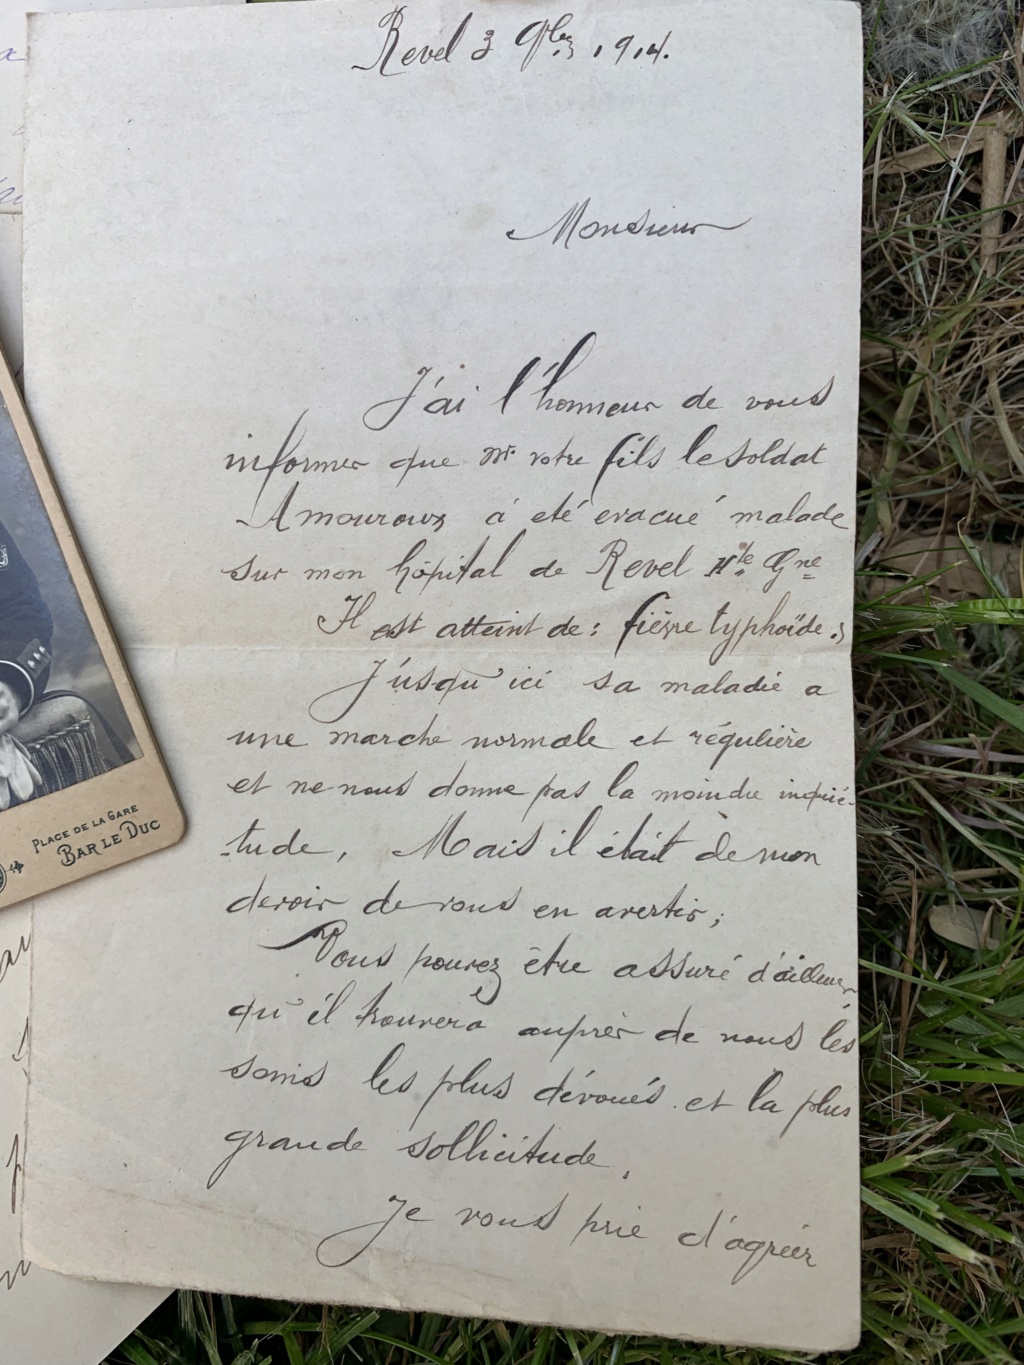 Revel 3 9bre 1914.
Monsieur
J'ai l'honneur de vous
informer que Mr votre fils le soldat
Amouroux à été évacué malade
sur mon hôpital de Revel Hte Gne
Il est atteint de : fièvre typhoïde.
Jusqu'ici sa maladie a
une marche normale et régulière
et ne nous donne pas la moindre inquié-
tude. Mais il était de mon
devoir de vous en avertir ;
Vous pouvez être assuré d'ailleurs
qu'il trouvera auprès de nous les
soins les plus dévoués et la plus
grande sollicitude.
Je vous prie d'agréer
PLACE DE LA GARE
BAR LE DUC